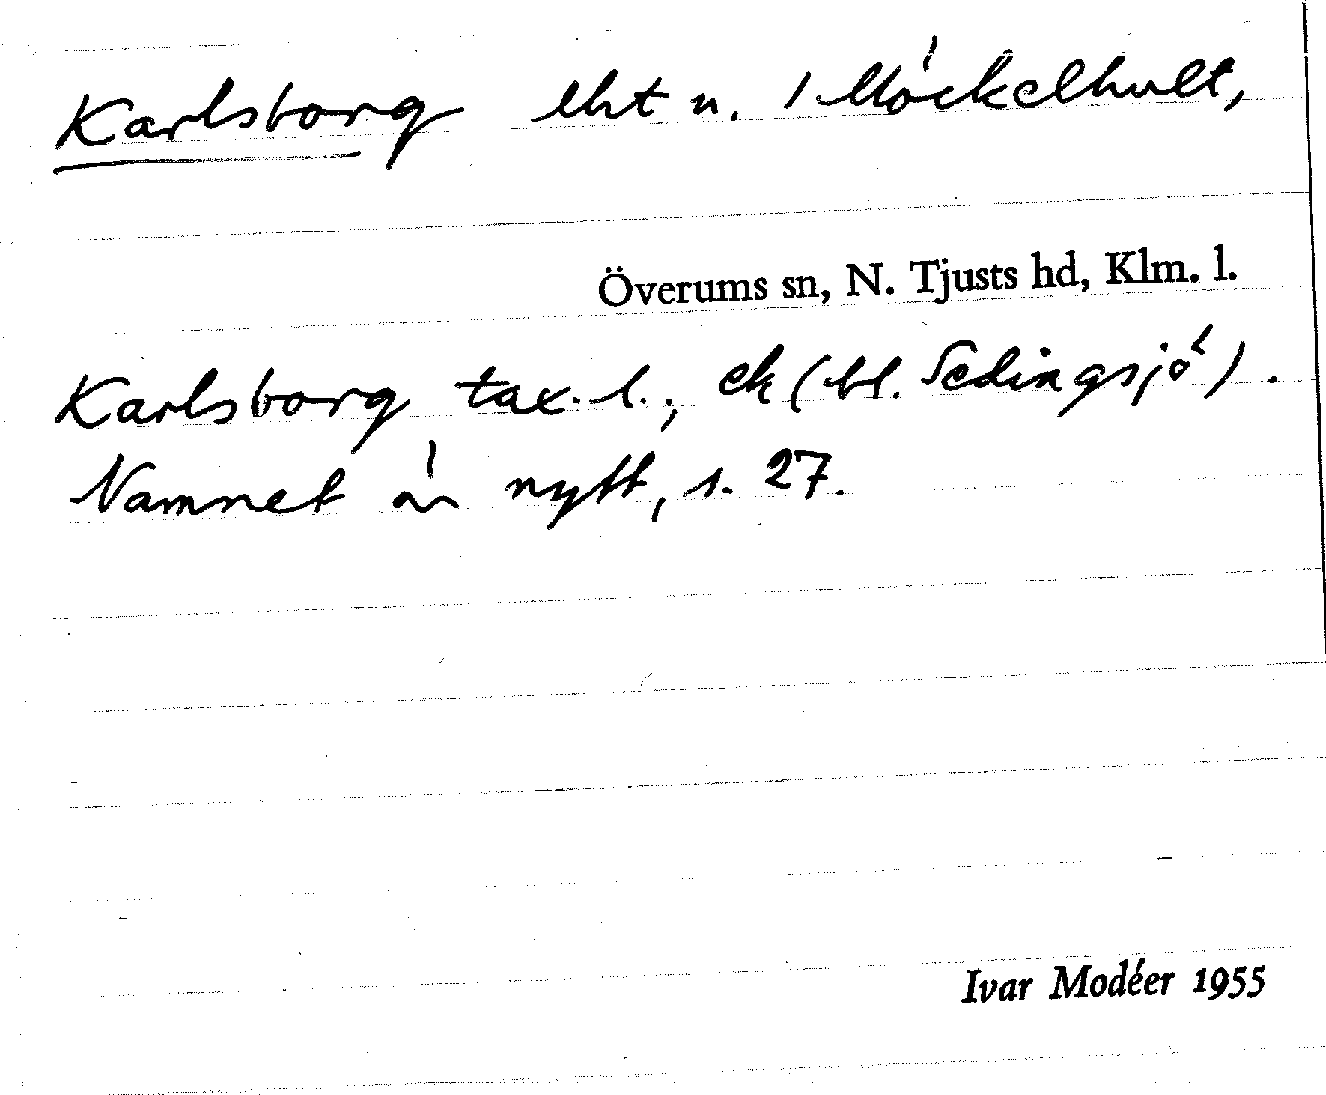 Karlsborg lht u. 1 Möckelhult,
Överums sn, N. Tjusts hd, Klm. l.
Karlsborg tax. l., ek (bl. Sedingsjö).
Namnet är nytt, s. 27.
Ivar Modéer 1955